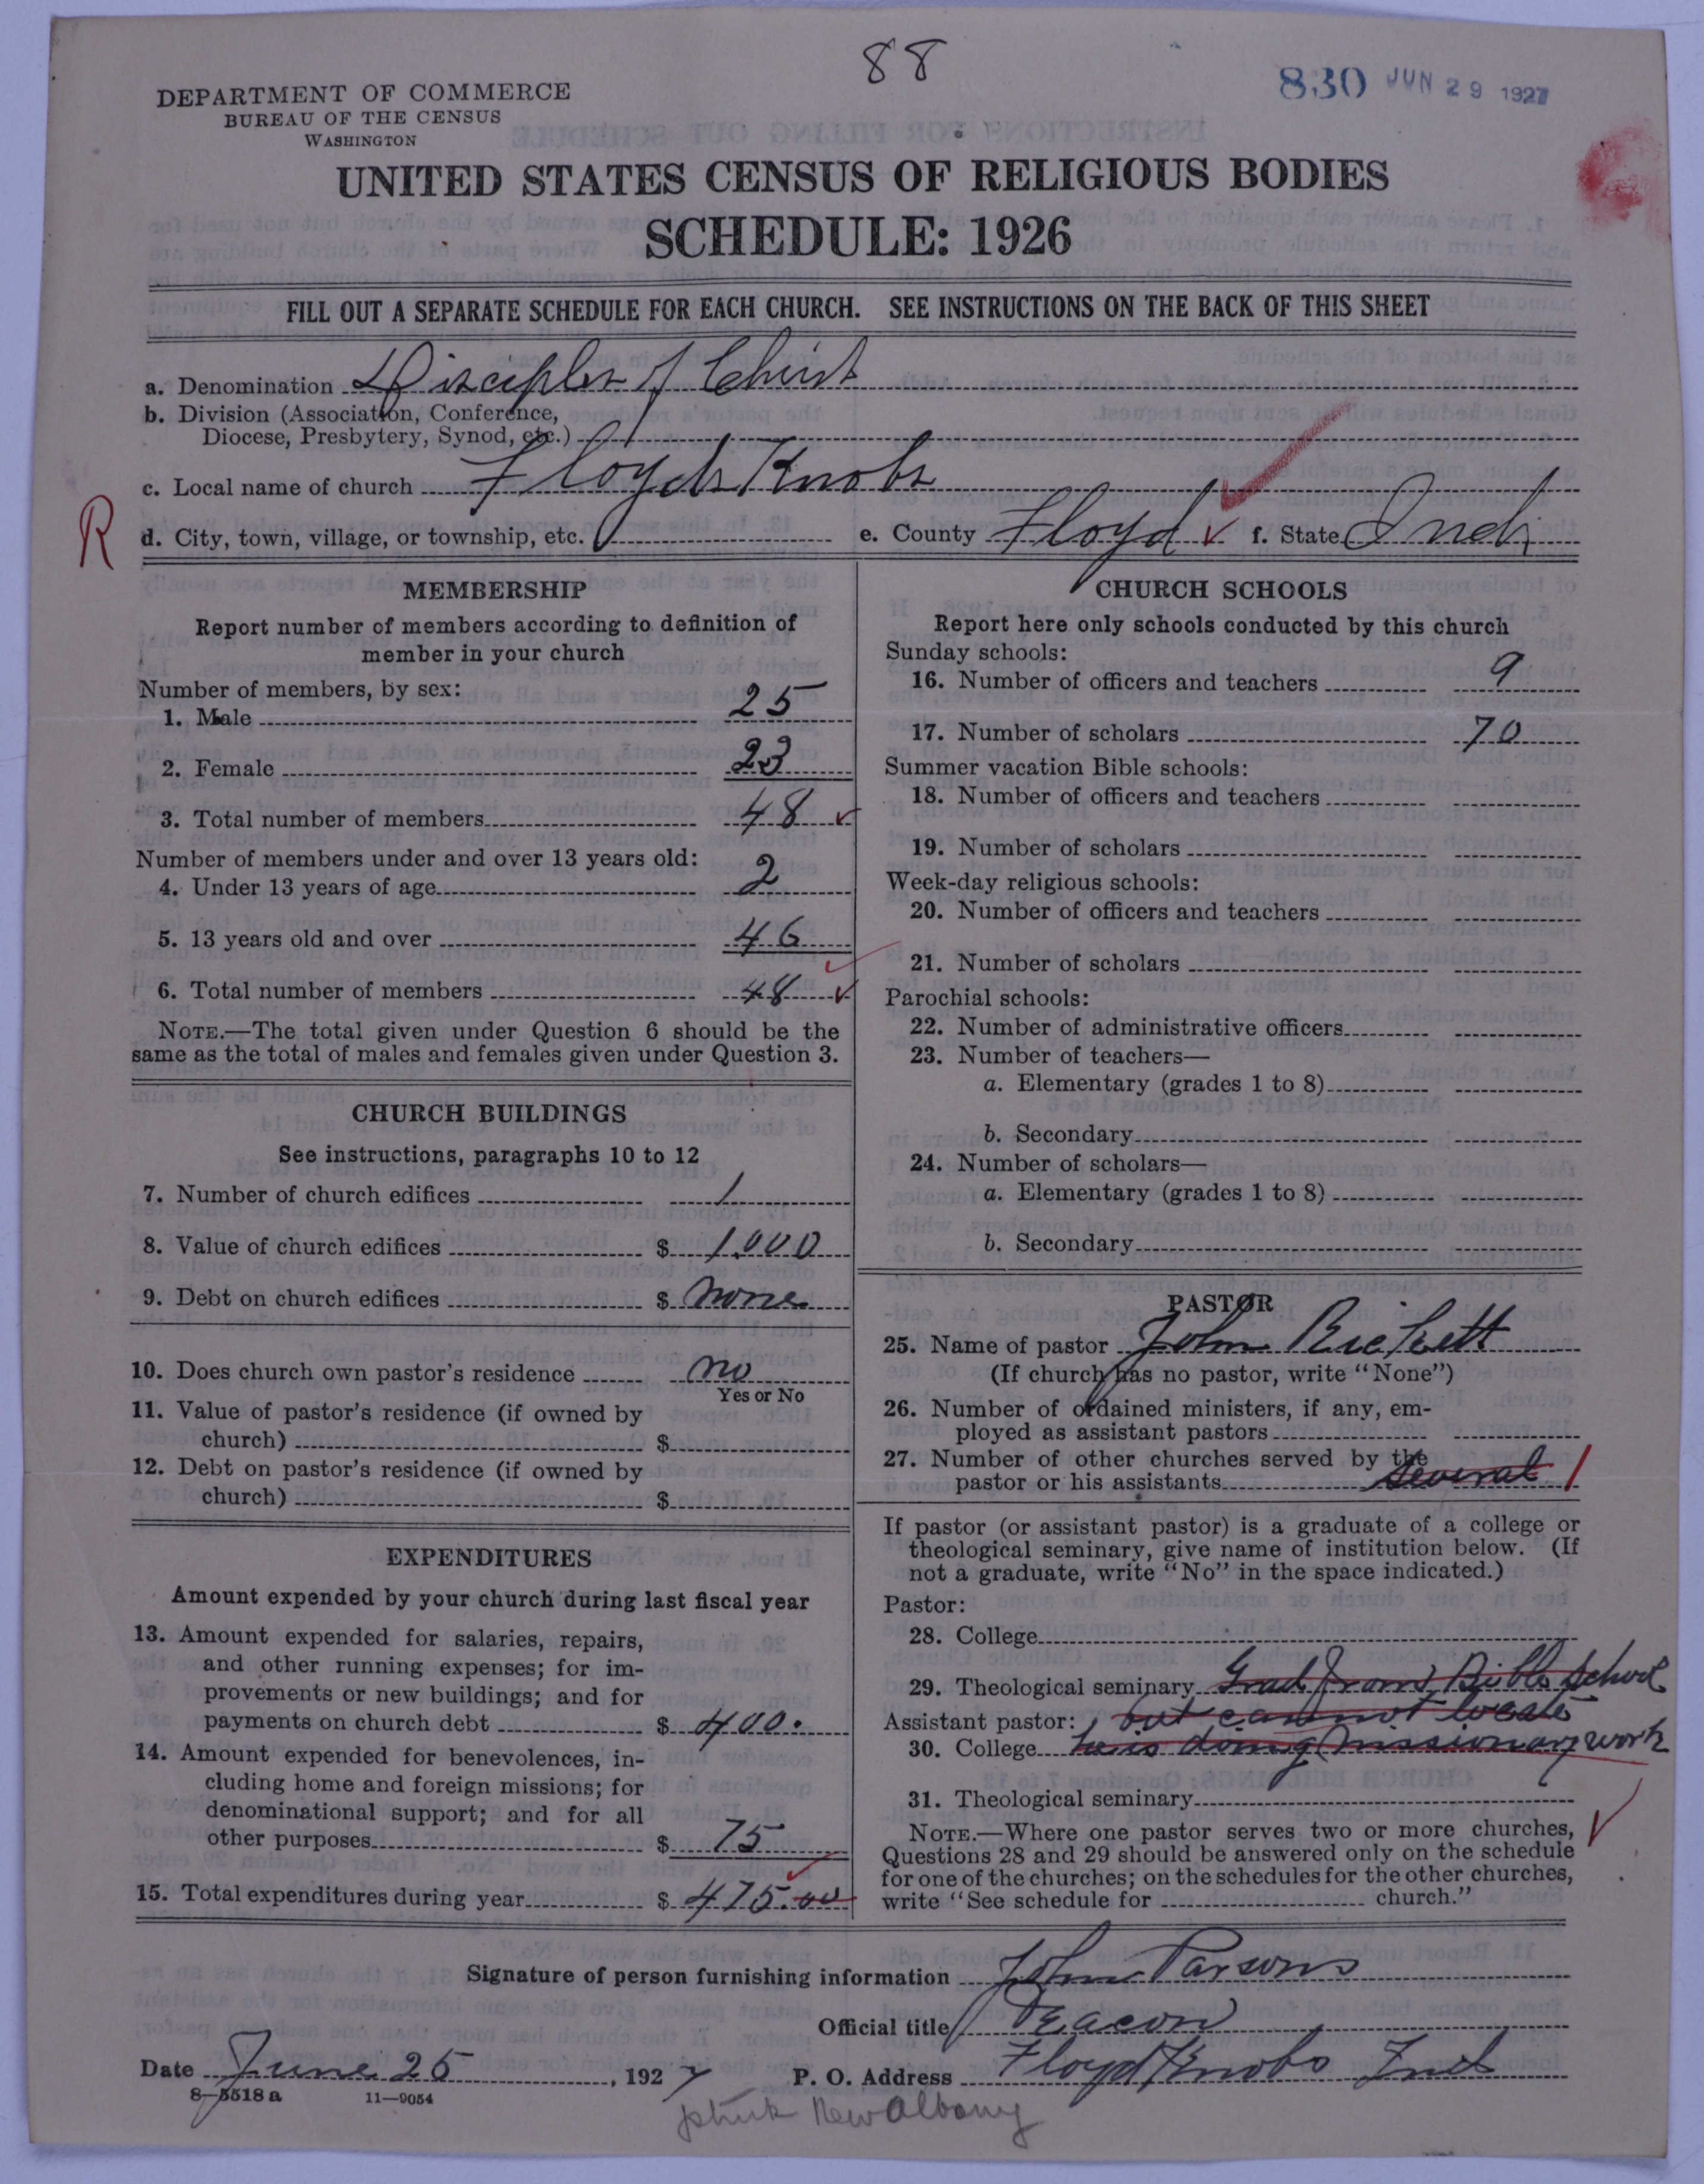 88
830 JUN 29 1927
DEPARTMENT OF COMMERCE
BUREAU OF THE CENSUS
WASHINGTON
UNITED STATES CENSUS OF RELIGIOUS BODIES
SCHEDULE: 1926
FILL OUT A SEPARATE SCHEDULE FOR EACH CHURCH. SEE INSTRUCTIONS ON THE BACK OF THIS SHEET
a. Denomination Disciples of Christ
b. Division (Association, Conference,
Diocese, Presbytery, Synod, etc.)
c. Local name of church Floyds Knobs
R
d. City, town, village, or township, etc. e. County Floyd f. State Ind.
MEMBERSHIP
Report number of members according to definition of
member in your church
Number of members, by sex:
1. Male 25
2. Female 23
3. Total number of members 48
Number of members under and over 13 years old:
4. Under 13 years of age 2
5. 13 years old and over 46
6. Total number of members 48
NOTE.—The total given under Question 6 should be the
same as the total of males and females given under Question 3.
CHURCH BUILDINGS
See instructions, paragraphs 10 to 12
7. Number of church edifices 1
8. Value of church edifices $ 1.000
9. Debt on church edifices $ none
10. Does church own pastor's residence no
Yes or No
11. Value of pastor's residence (if owned by
church) $
12. Debt on pastor's residence (if owned by
church) $
EXPENDITURES
Amount expended by your church during last fiscal year
13. Amount expended for salaries, repairs,
and other running expenses; for im-
provements or new buildings; and for
payments on church debt $ 400.
14. Amount expended for benevolences, in-
cluding home and foreign missions; for
denominational support; and for all
other purposes $ 75
15. Total expenditures during year $ 475.00
CHURCH SCHOOLS
Report here only schools conducted by this church
Sunday schools:
16. Number of officers and teachers 9
17. Number of scholars 70
Summer vacation Bible schools:
18. Number of officers and teachers
19. Number of scholars
Week-day religious schools:
20. Number of officers and teachers
21. Number of scholars
Parochial schools:
22. Number of administrative officers
23. Number of teachers—
a. Elementary (grades 1 to 8)
b. Secondary
24. Number of scholars—
a. Elementary (grades 1 to 8)
b. Secondary
PASTOR
25. Name of pastor John
(If church has no pastor, write "None")
26. Number of ordained ministers, if any, em-
ployed as assistant pastors
27. Number of other churches served by the
pastor or his assistants several 1
If pastor (or assistant pastor) is a graduate of a college or
theological seminary, give name of institution below. (If
not a graduate, write "No" in the space indicated.)
Pastor:
28. College
29. Theological seminary Grad from Bible School
Assistant pastor: but cannot locate
30. College he is doing missionary work
31. Theological seminary
NOTE.—Where one pastor serves two or more churches,
Questions 28 and 29 should be answered only on the schedule
for one of the churches; on the schedules for the other churches,
write "See schedule for church."
Signature of person furnishing information John Parsons
Official title Deacon
Date June 25, 1927 P. O. Address Floyd Knobs Ind
8—5518 a 11—9054
New Albany